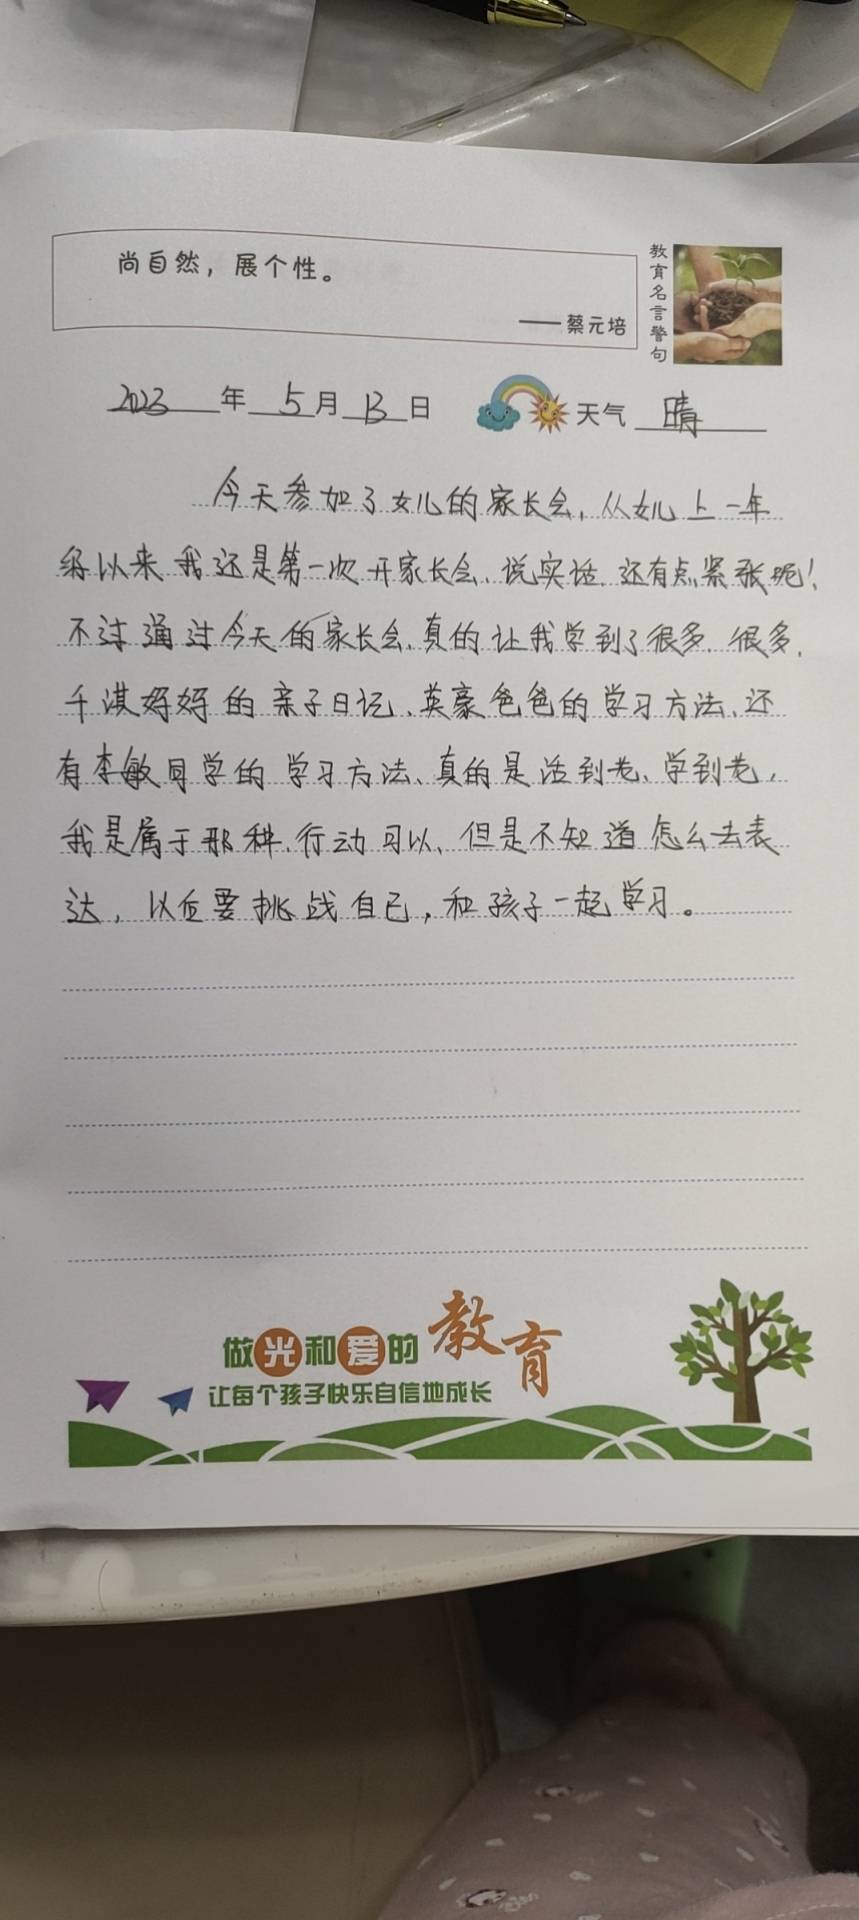 尚自然，展个性。
——蔡元培
教育名言警句
2023年5月13日 天气 晴
今天参加了女儿的家长会，从女儿上一年
级以来我还是第一次开家长会、说实话，还有点紧张呢！
不过通过今天的家长会，真的让我学到了很多，很多，
千淇妈妈的亲子日记、英豪爸爸的学习方法、还
有李敏同学的学习方法、真的是活到老、学到老，
我是属于那种、行动可以、但是不知道怎么去表
达，以后要挑战自己，和孩子一起学习。
做光和爱的教育
让每个孩子快乐自信地成长